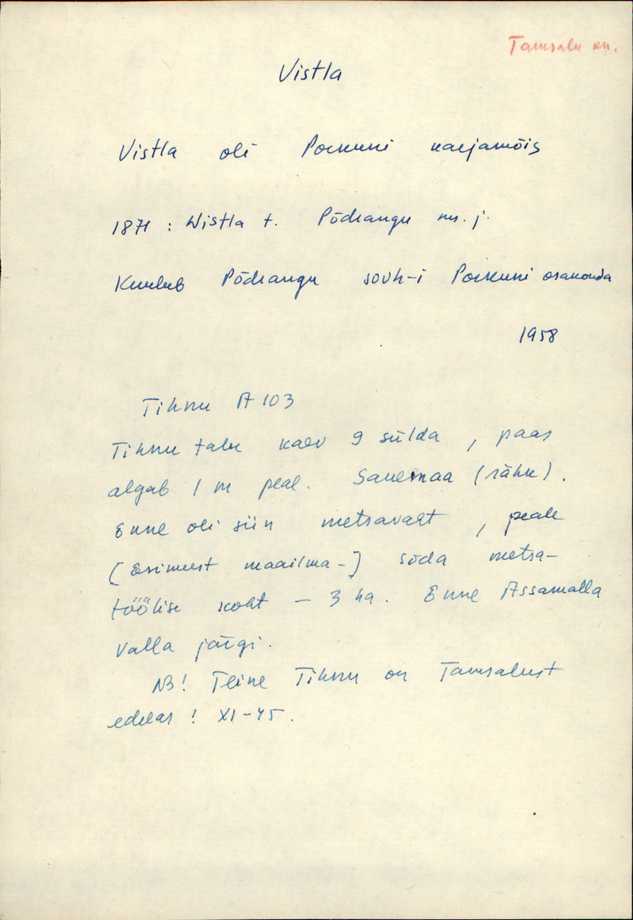 Tamsalu kn.
Vistla
Vistla oli Porkuni karjamõis
1871 : Wistla t. Põdrangu ms. j.
Kuulub Põdrangu sovh-i Porkuni osakonda
1958
Tihnu A 103
Tihnu talu kaev 9 sülda, paas
algab 1 m peal. Savemaa (rähu).
Enne oli siin metsavaht, peale
[Esimest maailma-] sõda metsa-
töölise koht – 3 ha. Enne Assamalla
valla järgi.
NB! Teine Tihnu on Tamsalust
edelas! XI-45.